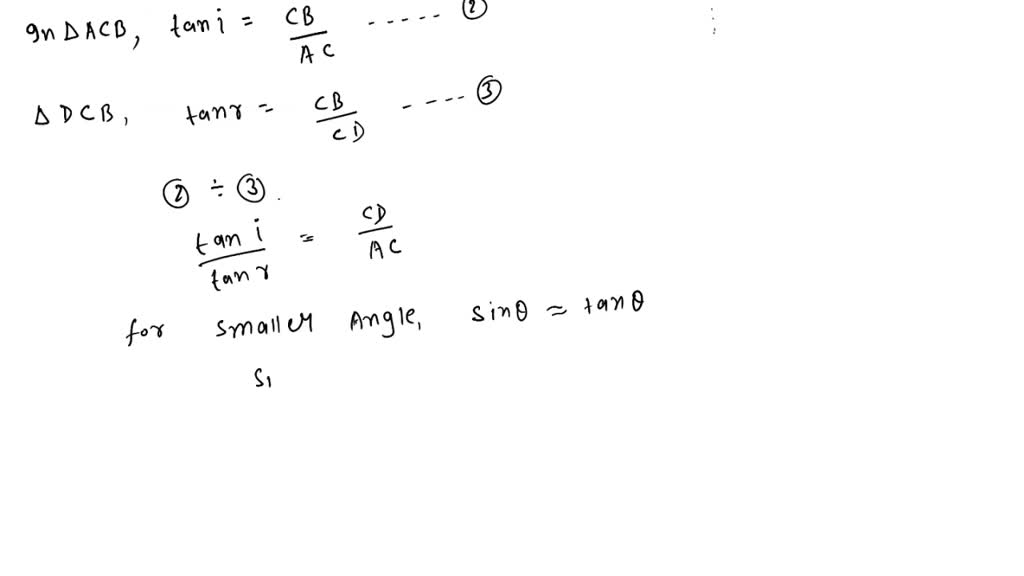 In ΔACB, tan i = CB/AC ----- ②
ΔDCB, tan r = CB/CD ---- ③
② ÷ ③.
tan i/tan r = CD/AC
for smaller Angle, sinθ ≈ tanθ
si